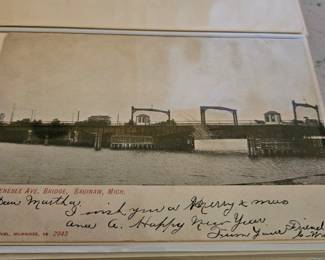 ENESEE AVE. BRIDGE, SAGINAW, MICH.
Dear Martha,
I wish you a Merry Xmas
and a. Happy New Year
From your Friend
MILWAUKEE, No 2943